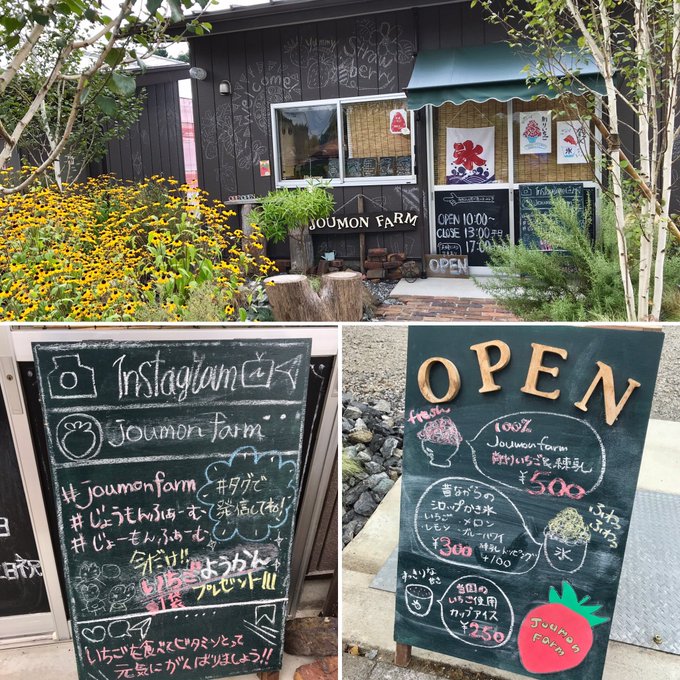 Welcome
yummy
Straw
berry
JOUMON FARM
氷
氷
JOUMON FARM
OPEN 10:00~
CLOSE 13:00 平日
17:00
Instagram
OPEN
Instagram
joumon farm
#joumonfarm
#じょうもんふぁーむ
#じょーもんふぁーむ
#タグで
発信してね!
今だけ!
いちごようかん
プレゼント!!!
いちごを食べてビタミンとって
元気にがんばりましょう!!
OPEN
fresh
100%
Joumonfarm
削りいちご&練乳
¥500
昔ながらの
シロップかき氷
いちご・メロン
レモン・ブルーハワイ
¥300
練乳トッピング
+100
ふわ
ふわ
氷
当園の
いちご使用
カップアイス
¥250
Joumon
farm